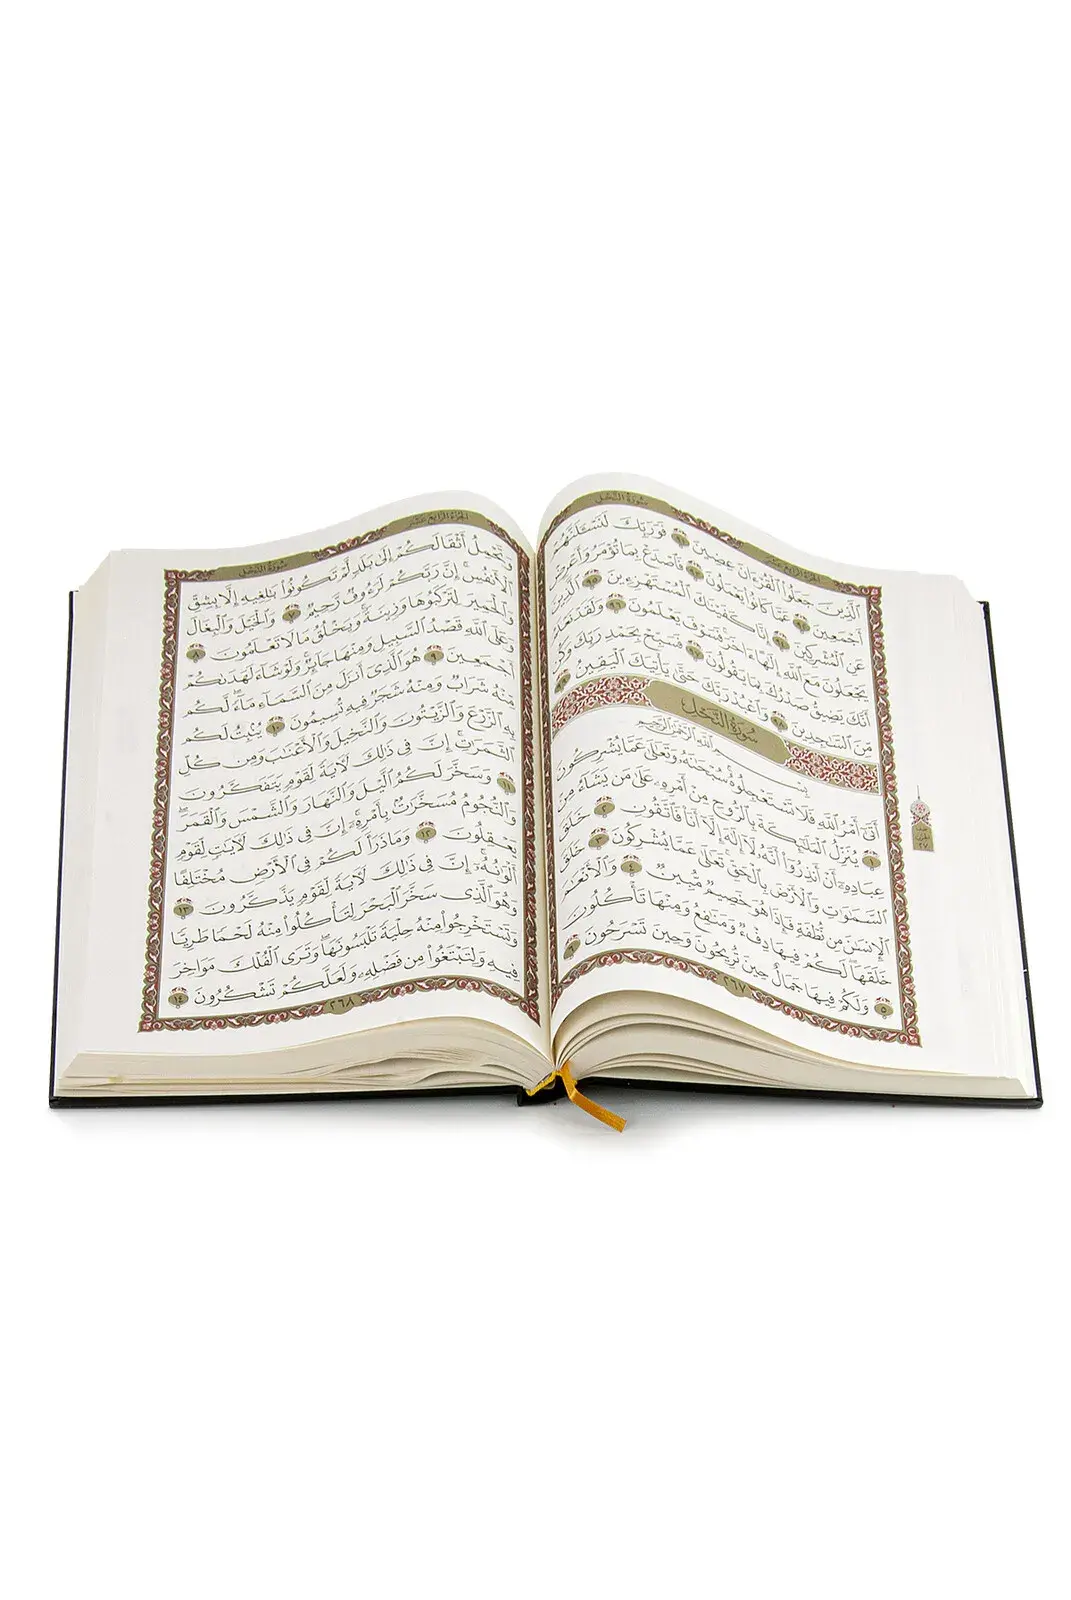 سُورَةُ النَّحْلِ
الجُزْءُ الرَّابِعَ عَشَرَ
ٱلَّذِينَ جَعَلُوا۟ ٱلْقُرْءَانَ عِضِينَ ٩١ فَوَرَبِّكَ لَنَسْـَٔلَنَّهُمْ
أَجْمَعِينَ ٩٢ عَمَّا كَانُوا۟ يَعْمَلُونَ ٩٣ فَٱصْدَعْ بِمَا تُؤْمَرُ وَأَعْرِضْ
عَنِ ٱلْمُشْرِكِينَ ٩٤ إِنَّا كَفَيْنَٰكَ ٱلْمُسْتَهْزِءِينَ ٩٥ ٱلَّذِينَ
يَجْعَلُونَ مَعَ ٱللَّهِ إِلَٰهًا ءَاخَرَ فَسَوْفَ يَعْلَمُونَ ٩٦ وَلَقَدْ نَعْلَمُ
أَنَّكَ يَضِيقُ صَدْرُكَ بِمَا يَقُولُونَ ٩٧ فَسَبِّحْ بِحَمْدِ رَبِّكَ وَكُن
مِّنَ ٱلسَّٰجِدِينَ ٩٨ وَٱعْبُدْ رَبَّكَ حَتَّىٰ يَأْتِيَكَ ٱلْيَقِينُ ٩٩
سُورَةُ النَّحْلِ
بِسْمِ ٱللَّهِ ٱلرَّحْمَٰنِ ٱلرَّحِيمِ
أَتَىٰٓ أَمْرُ ٱللَّهِ فَلَا تَسْتَعْجِلُوهُ سُبْحَٰنَهُۥ وَتَعَٰلَىٰ عَمَّا يُشْرِكُونَ
١ يُنَزِّلُ ٱلْمَلَٰٓئِكَةَ بِٱلرُّوحِ مِنْ أَمْرِهِۦ عَلَىٰ مَن يَشَآءُ مِنْ
عِبَادِهِۦٓ أَنْ أَنذِرُوٓا۟ أَنَّهُۥ لَآ إِلَٰهَ إِلَّآ أَنَا۠ فَٱتَّقُونِ ٢ خَلَقَ
ٱلسَّمَٰوَٰتِ وَٱلْأَرْضَ بِٱلْحَقِّ تَعَٰلَىٰ عَمَّا يُشْرِكُونَ ٣ خَلَقَ
ٱلْإِنسَٰنَ مِن نُّطْفَةٍ فَإِذَا هُوَ خَصِيمٌ مُّبِينٌ ٤ وَٱلْأَنْعَٰمَ
خَلَقَهَا لَكُمْ فِيهَا دِفْءٌ وَمَنَٰفِعُ وَمِنْهَا تَأْكُلُونَ
٥ وَلَكُمْ فِيهَا جَمَالٌ حِينَ تُرِيحُونَ وَحِينَ تَسْرَحُونَ ٦
٢٦٧
نصف الحزب ٢٧
الجُزْءُ الرَّابِعَ عَشَرَ
سُورَةُ النَّحْلِ
وَتَحْمِلُ أَثْقَالَكُمْ إِلَىٰ بَلَدٍ لَّمْ تَكُونُوا۟ بَٰلِغِيهِ إِلَّا بِشِقِّ
ٱلْأَنفُسِ إِنَّ رَبَّكُمْ لَرَءُوفٌ رَّحِيمٌ ٧ وَٱلْخَيْلَ وَٱلْبِغَالَ
وَٱلْحَمِيرَ لِتَرْكَبُوهَا وَزِينَةً وَيَخْلُقُ مَا لَا تَعْلَمُونَ ٨
وَعَلَى ٱللَّهِ قَصْدُ ٱلسَّبِيلِ وَمِنْهَا جَآئِرٌ وَلَوْ شَآءَ لَهَدَىٰكُمْ
أَجْمَعِينَ ٩ هُوَ ٱلَّذِىٓ أَنزَلَ مِنَ ٱلسَّمَآءِ مَآءً لَّكُم
مِّنْهُ شَرَابٌ وَمِنْهُ شَجَرٌ فِيهِ تُسِيمُونَ ١٠ يُنۢبِتُ لَكُم
بِهِ ٱلزَّرْعَ وَٱلزَّيْتُونَ وَٱلنَّخِيلَ وَٱلْأَعْنَٰبَ وَمِن كُلِّ
ٱلثَّمَرَٰتِ إِنَّ فِى ذَٰلِكَ لَءَايَةً لِّقَوْمٍ يَتَفَكَّرُونَ
١١ وَسَخَّرَ لَكُمُ ٱلَّيْلَ وَٱلنَّهَارَ وَٱلشَّمْسَ وَٱلْقَمَرَ
وَٱلنُّجُومُ مُسَخَّرَٰتٌۢ بِأَمْرِهِۦٓ إِنَّ فِى ذَٰلِكَ لَءَايَٰتٍ لِّقَوْمٍ
يَعْقِلُونَ ١٢ وَمَا ذَرَأَ لَكُمْ فِى ٱلْأَرْضِ مُخْتَلِفًا
أَلْوَٰنُهُۥٓ إِنَّ فِى ذَٰلِكَ لَءَايَةً لِّقَوْمٍ يَذَّكَّرُونَ ١٣
وَهُوَ ٱلَّذِى سَخَّرَ ٱلْبَحْرَ لِتَأْكُلُوا۟ مِنْهُ لَحْمًا طَرِيًّا
وَتَسْتَخْرِجُوا۟ مِنْهُ حِلْيَةً تَلْبَسُونَهَا وَتَرَى ٱلْفُلْكَ مَوَاخِرَ
فِيهِ وَلِتَبْتَغُوا۟ مِن فَضْلِهِۦ وَلَعَلَّكُمْ تَشْكُرُونَ ١٤
٢٦٨